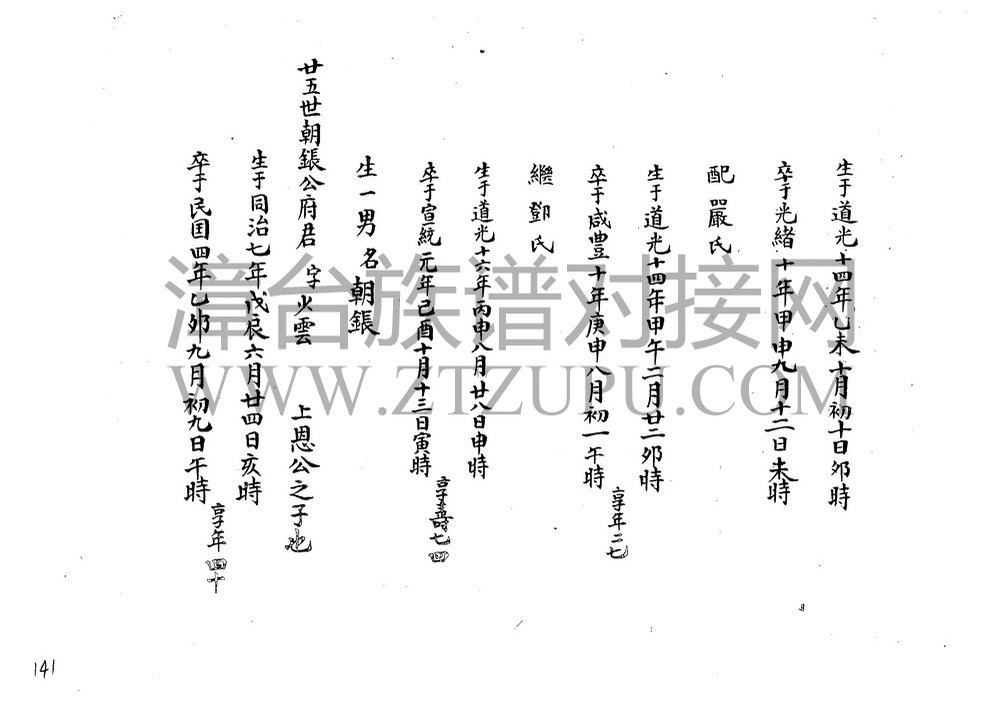 生于道光十四年乙未十月初十日卯時
卒于光緒十年甲申九月十二日未時
配嚴氏
生于道光十四年甲午二月廿二卯時
卒于咸豐十年庚申八月初一午時
享年二七
繼鄧氏
生于道光十六年丙申八月廿八日申時
卒于宣統元年己酉十月十三日寅時
享壽七四
生一男名朝鋹
廿五世朝鋹公府君 字火雲 上恩公之子也
生于同治七年戊辰六月廿四日亥時
卒于民国四年乙卯九月初九日午時
享年四十
漳台族谱对接网
WWW.ZTZUPU.COM
141